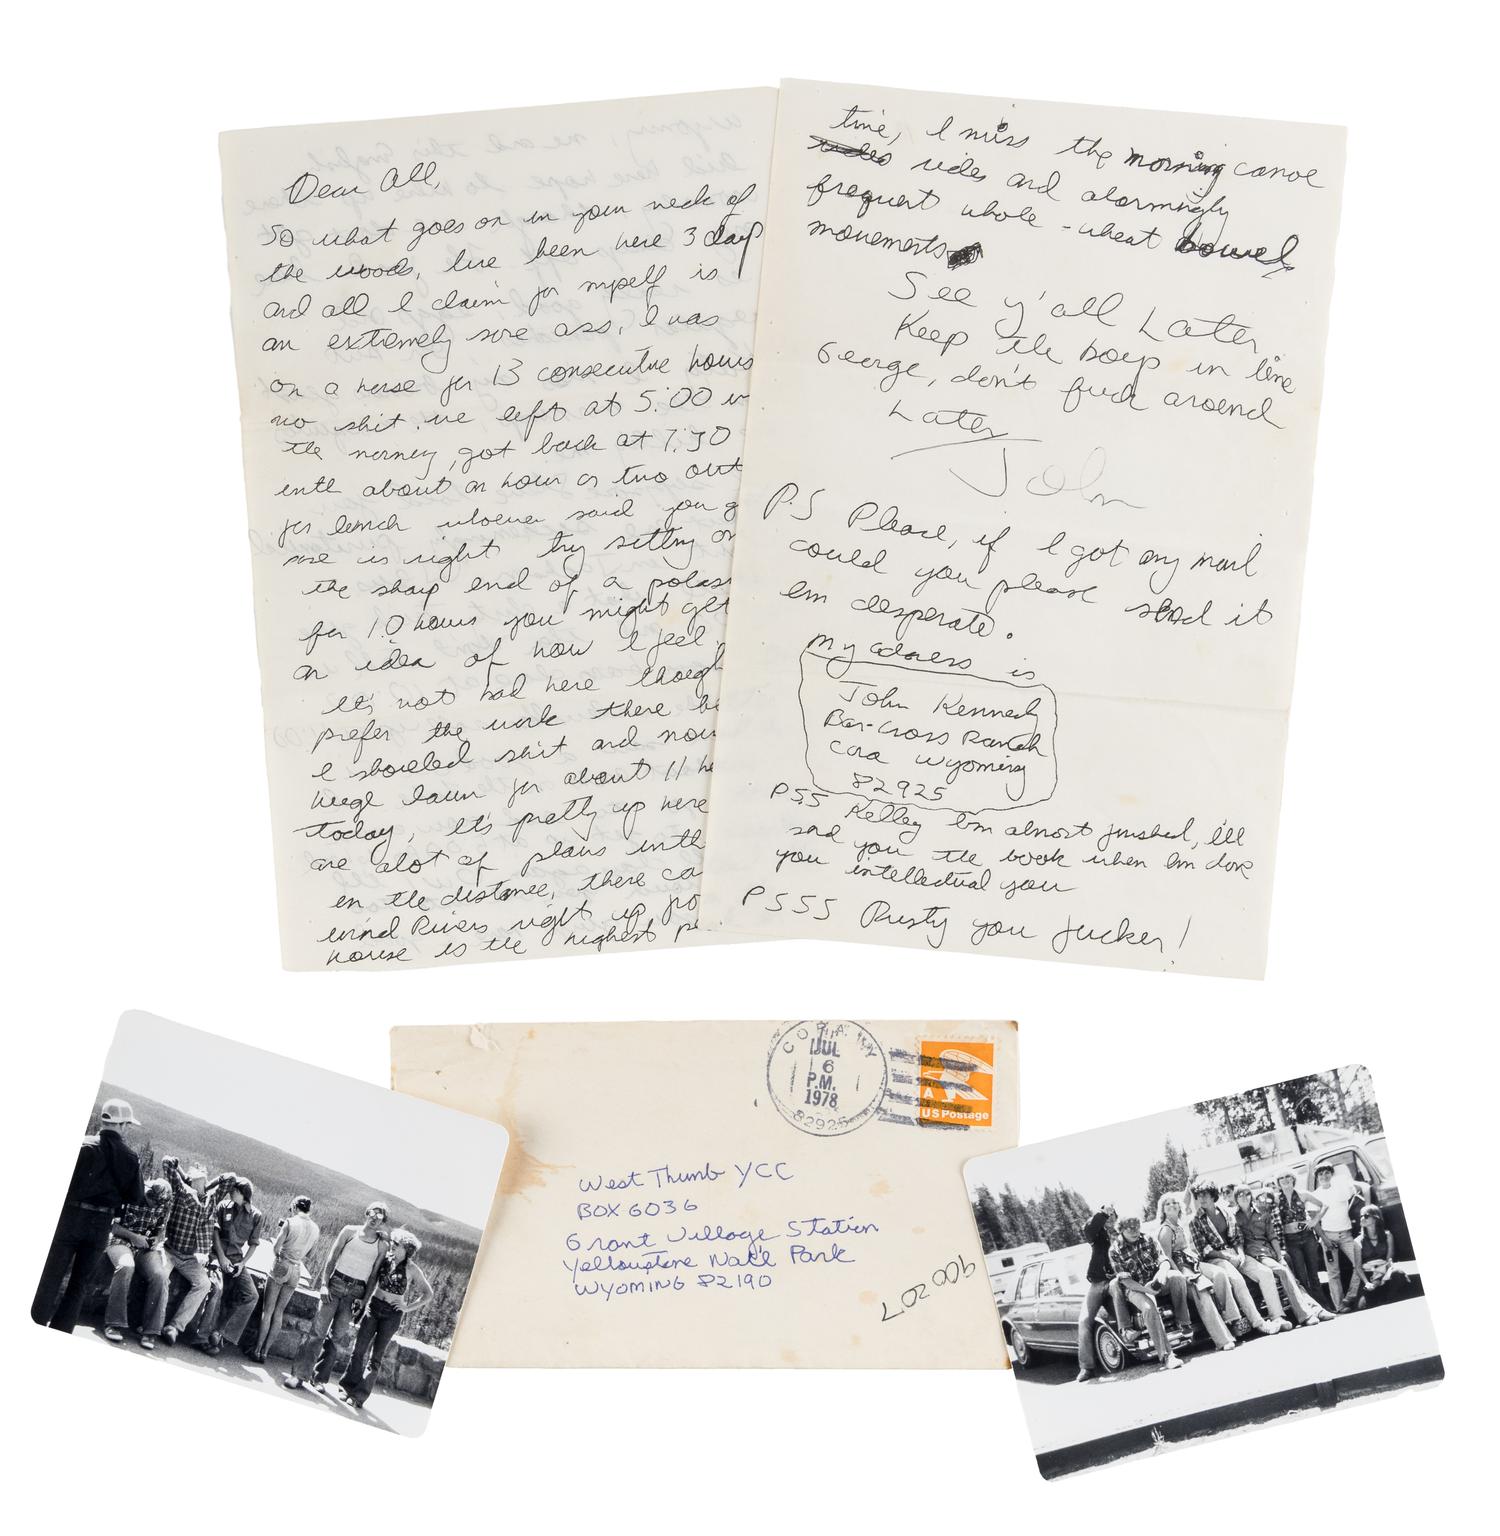 Dear All,
So what goes on in your neck of
the woods, Ive been here 3 days
and all I claim for myself is
an extremely sore ass, I was
on a horse for 13 consecutive hours
no shit. we left at 5:00 in
the morning, got back at 7:30
with about an hour or two out
for lunch whoever said you g
sore is right try sitting on
the sharp end of a
for 10 hours you might get
an idea of how I feel.
It's not bad here though
prefer the work there bu
I shoveled shit and mow
huge lawn for about 11 ho
today, It's pretty up here
are alot of plains with
in the distance, there ca
wind Rivers right up
house is the highest
time, I miss the morning canoe
rides and alarmingly
frequent whole-wheat bowel
movements
See y'all Later
Keep the boys in line
George, don't fuck around
Later
John
P.S Please, if I got any mail
could you please send it
Im desperate.
my adress is
John Kennedy
Bar-Cross Ranch
Cora Wyoming
82925
PSS Kelley Im almost finished, I'll
send you the book when Im done
you intellectual you
PSSS Rusty you fucker!
CORA, WY
JUL
6
P.M.
1978
82925
A
US Postage
West Thumb YCC
BOX 6036
Grant Village Station
Yellowstone Nat'l Park
WYOMING 82190
900207